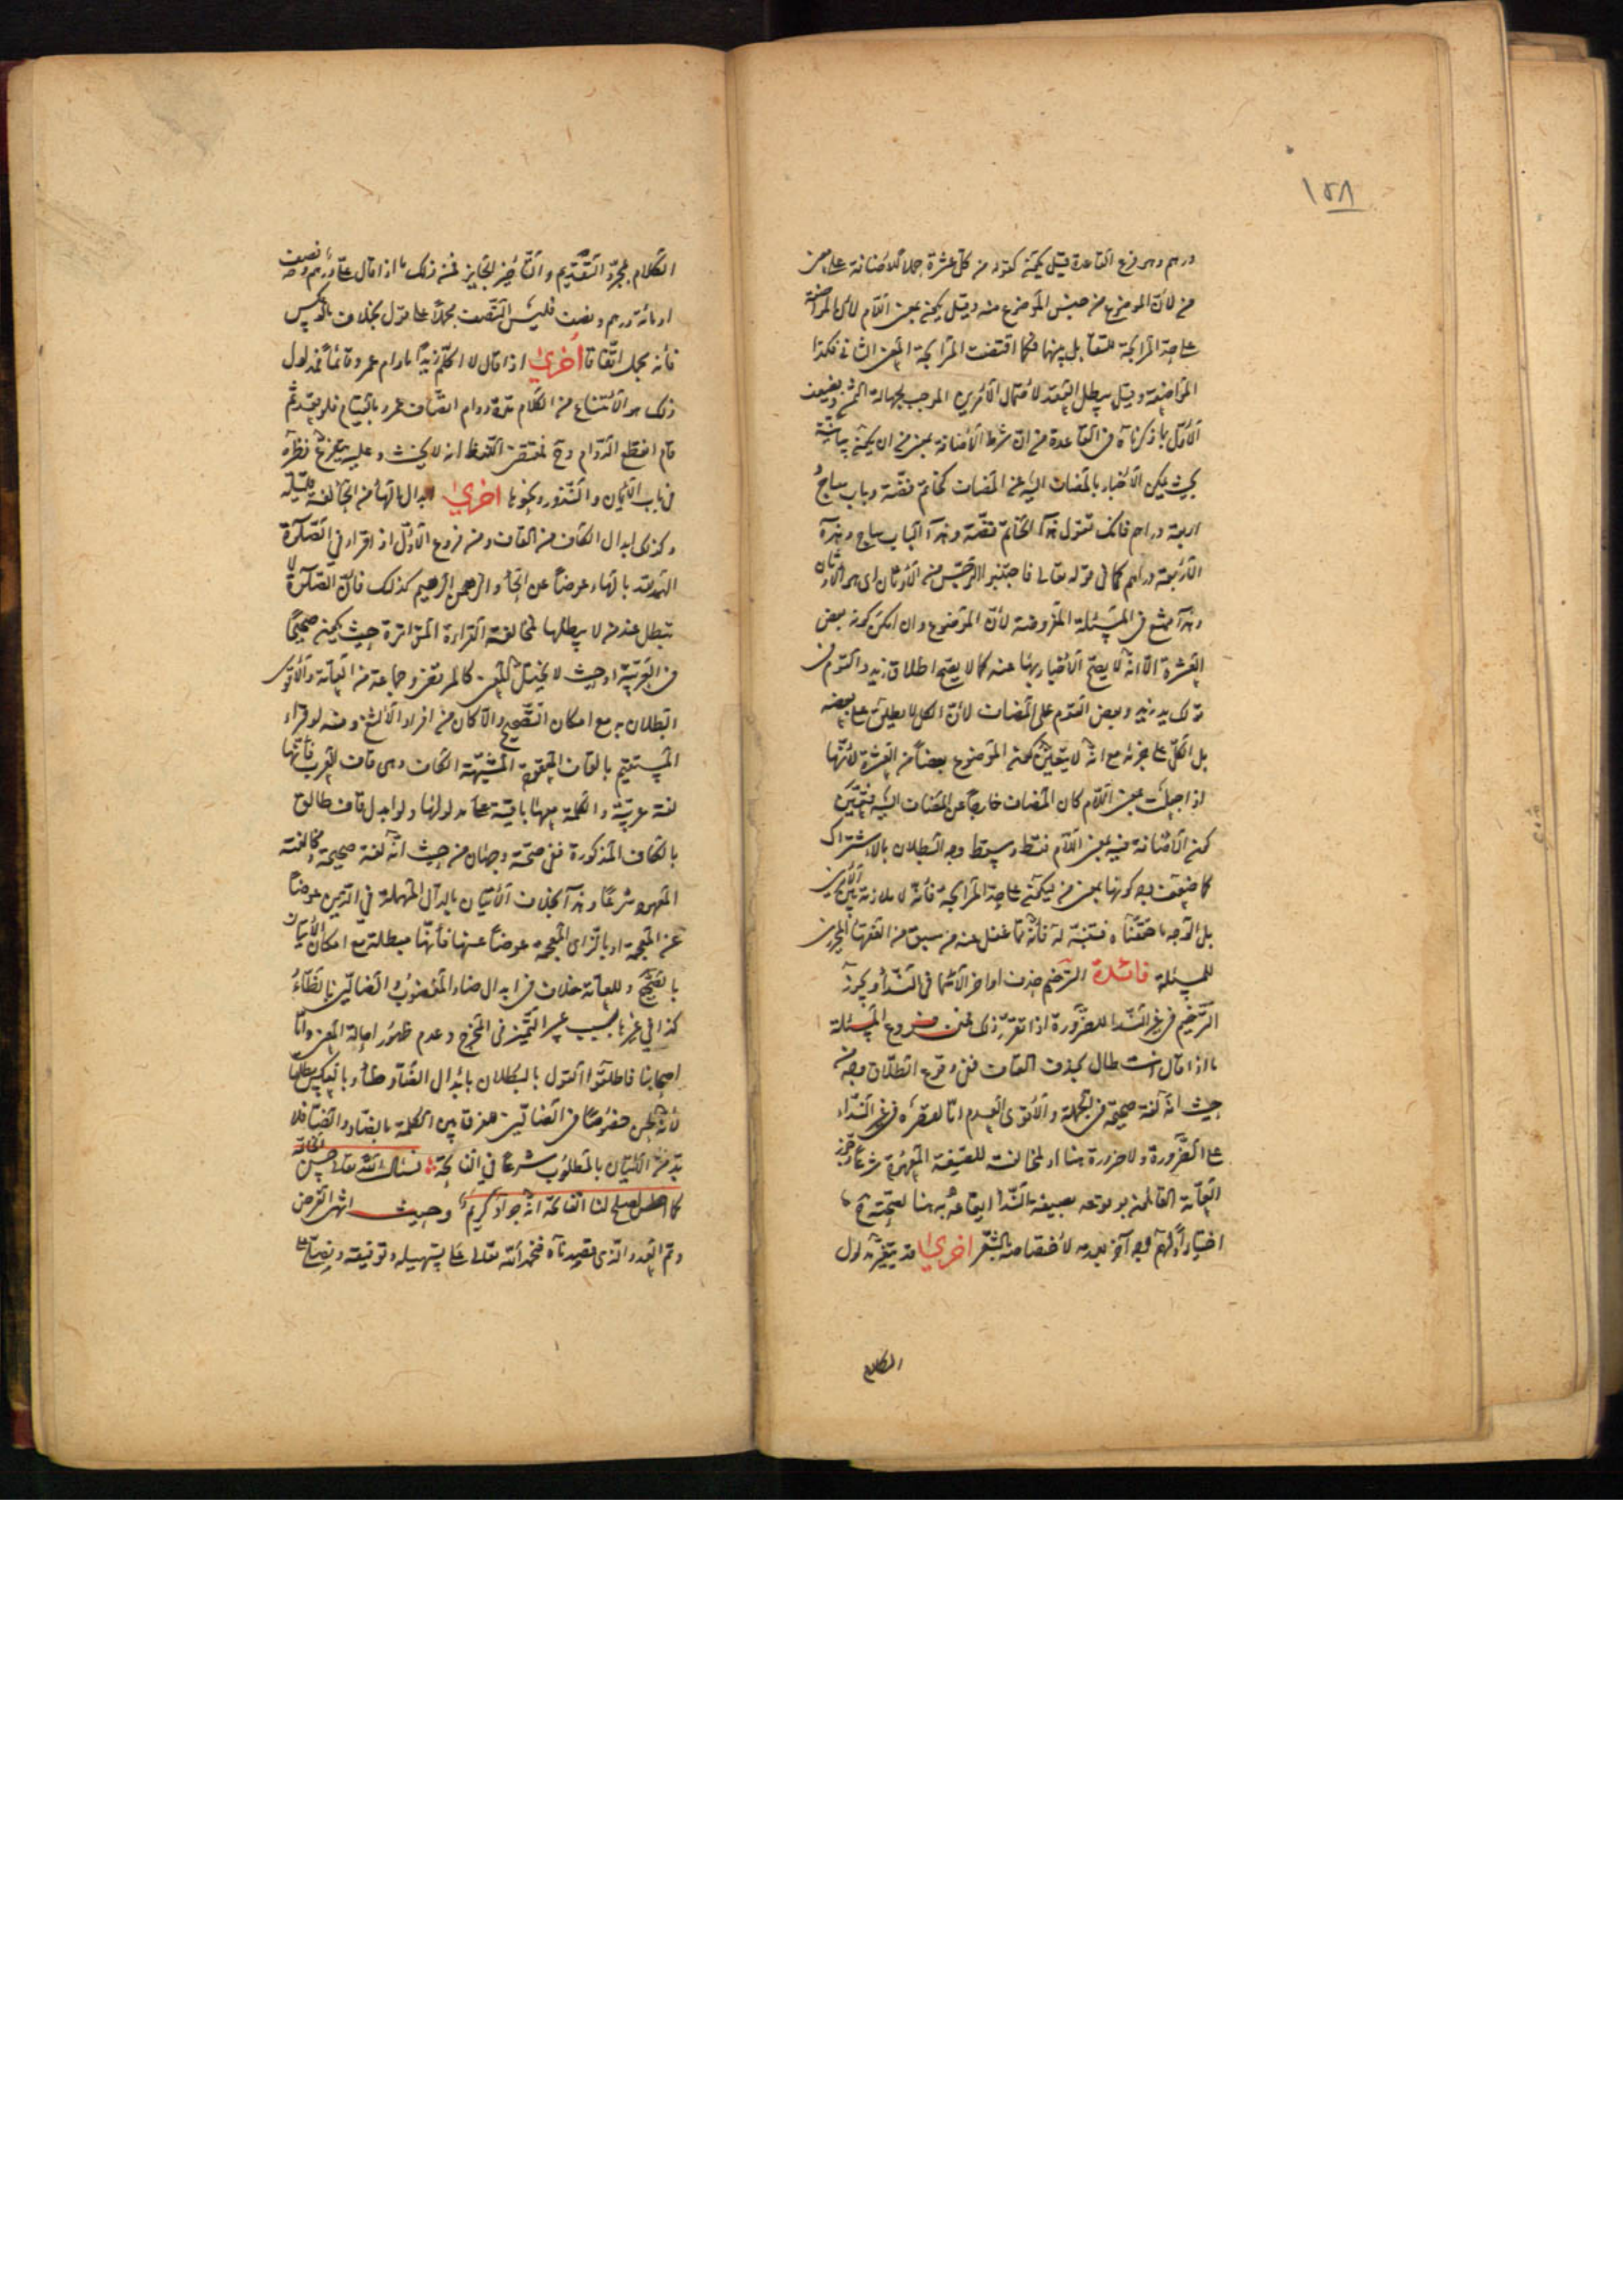 ١٥٨
درهم وهى فرع القاعدة قيل يكون كقوله من كل عشرة حملا للاضافة على معنى
من لان الموضوع من جنس الموضوع منه وقيل يكون بمعنى اللام لان المواضعة
على حد المرابحة للتقابل بينهما فكما اقتضت المرابحة المعنى الثانى فكذا
المواضعة وقيل يبطل العقد لاحتمال الامرين الموجب لجهالة الثمن ويضعف
الاول بما ذكرناه فى القاعدة من ان شرط الاضافة بمعنى من ان يكون بيانية
بحيث يمكن الاخبار بالمضاف اليه عن المضاف كخاتم فضة وباب ساج
اربعة دراهم فانك تقول هذا الخاتم فضة وهذا الباب ساج وهذه
الاربعة دراهم كما فى قوله تعالى فاجتنبوا الرجس من الاوثان اى هو الاوثان
وهذا ممتنع فى المسئلة المفروضة لان الموضوع وان امكن كونه بعض
العشرة الا انه لا يصح الاخبار بها عنه كما لا يصح اطلاق زيد والقوم فى
قولك يد زيد وبعض القوم على المضاف لان الكل لا يطلق على بعضه
بل الكل على جزئه مع انه لا يتعين كون الموضوع بعضا من العشرة لانها
اذا جعلت بمعنى اللام كان المضاف خارجا عن المضاف اليه فتعين
كون الاضافة فيه بمعنى اللام فقط وسقط وجه البطلان بالاشتراك
كما ضعف وجه كونها بمعنى من ليكون على حد المرابحة فانه لا ملازمة بين الامرين
بل الوجه ما حققناه فتنبه له فانه مما غفل عنه من سبق من الفقهاء المحررين
للمسئلة فائدة الترخيم حذف اواخر الاسماء فى النداء ويجوز
الترخيم فى غير النداء للضرورة اذا تقرر ذلك فمن فروع المسئلة
ما اذا قال انت طال بحذف القاف ففى وقوع الطلاق وجه من
حيث انه لغة صحيحة فى الجملة والاقوى العدم اما لقصره فى غير النداء
على الضرورة ولا ضرورة هنا او لمخالفته للصيغة المعهودة شرعا وجزم
العامة القائلون بوقوعه بصيغة النداء ايقاعه به هنا لصحته ح
اختيارا ولهم وجه آخر بعدمه لاختصاصه بالشعر اخرى قد يتغير مدلول
الكلام
الكلام بمجرد التقديم والتاخير الجايز فمن ذلك ما اذا قال على درهم ونصف
او مائة درهم ونصف فليس النصف مجملا على قول بخلاف ما لو عكس
فانه مجمل اتفاقا اخرى اذا قال لا اكلم زيدا ما دام عمرو قائما فمدلول
ذلك هو الامتناع من الكلام مدة دوام اتصاف عمرو بالقيام فلو قعد ثم
قام انقطع الدوام وح فمقتضى اللفظ انه لا يحنث وعليه يتفرع نظره
فى باب الايمان والنذور ونحوها اخرى ابدال الهاء من الحاء لغة قليلة
وكذلك ابدال الكاف من القاف ومن فروع الاول اذا قراء فى الصلوة
الهمد لله بالهاء عوضا عن الحاء والرهمن الرهيم كذلك فان الصلوة لا
تبطل عند من لا يبطلها لمخالفة القراءة المتواترة حيث يكون صحيحا
فى العربية او حيث لا يختل المعنى كالمرتضى وجماعة من العامة والاقوى
البطلان به مع امكان التصحيح والا كان من افراد الالثغ ومنه لو قراء
المستقيم بالقاف المعقودة المشبهة الكاف وهى قاف العرب فانها
لغة عربية والكلمة معها باقية على مدلولها ولو ابدل قاف طالق
بالكاف المذكورة ففى صحته وجهان من حيث انه لغة صحيحة ومخالفته
المعهود شرعا وهذا بخلاف الاتيان بالدال المهملة فى الذين عوضا
عن المعجمة او بالزاى المعجمة عوضا عنها فانها مبطلة مع امكان الاتيان
بالصحيح وللعامة خلاف فى ابدال ضاد المغضوب والضالين بالظاء
كذا فى غيرها بسبب عسر التمييز فى المخرج وعدم ظهور احالة المعنى واما
اصحابنا فاطلقوا القول بالبطلان بابدال الضاد ظاء وبالعكس مطلقا
لانه لحن خصوصا فى الضالين فرقا بين الكلمة بالضاد والظاء فلا
بد من الاتيان بالمطلوب شرعا فى الفاتحة نسئل الله تعالى حسن الخاتمة
كما اصلح لنا الفاتحة انه جواد كريم وحيث انتهى الغرض
وتم العدد الذى قصدناه فنحمد الله تعالى على تسهيله وتوفيقه ونصلى على